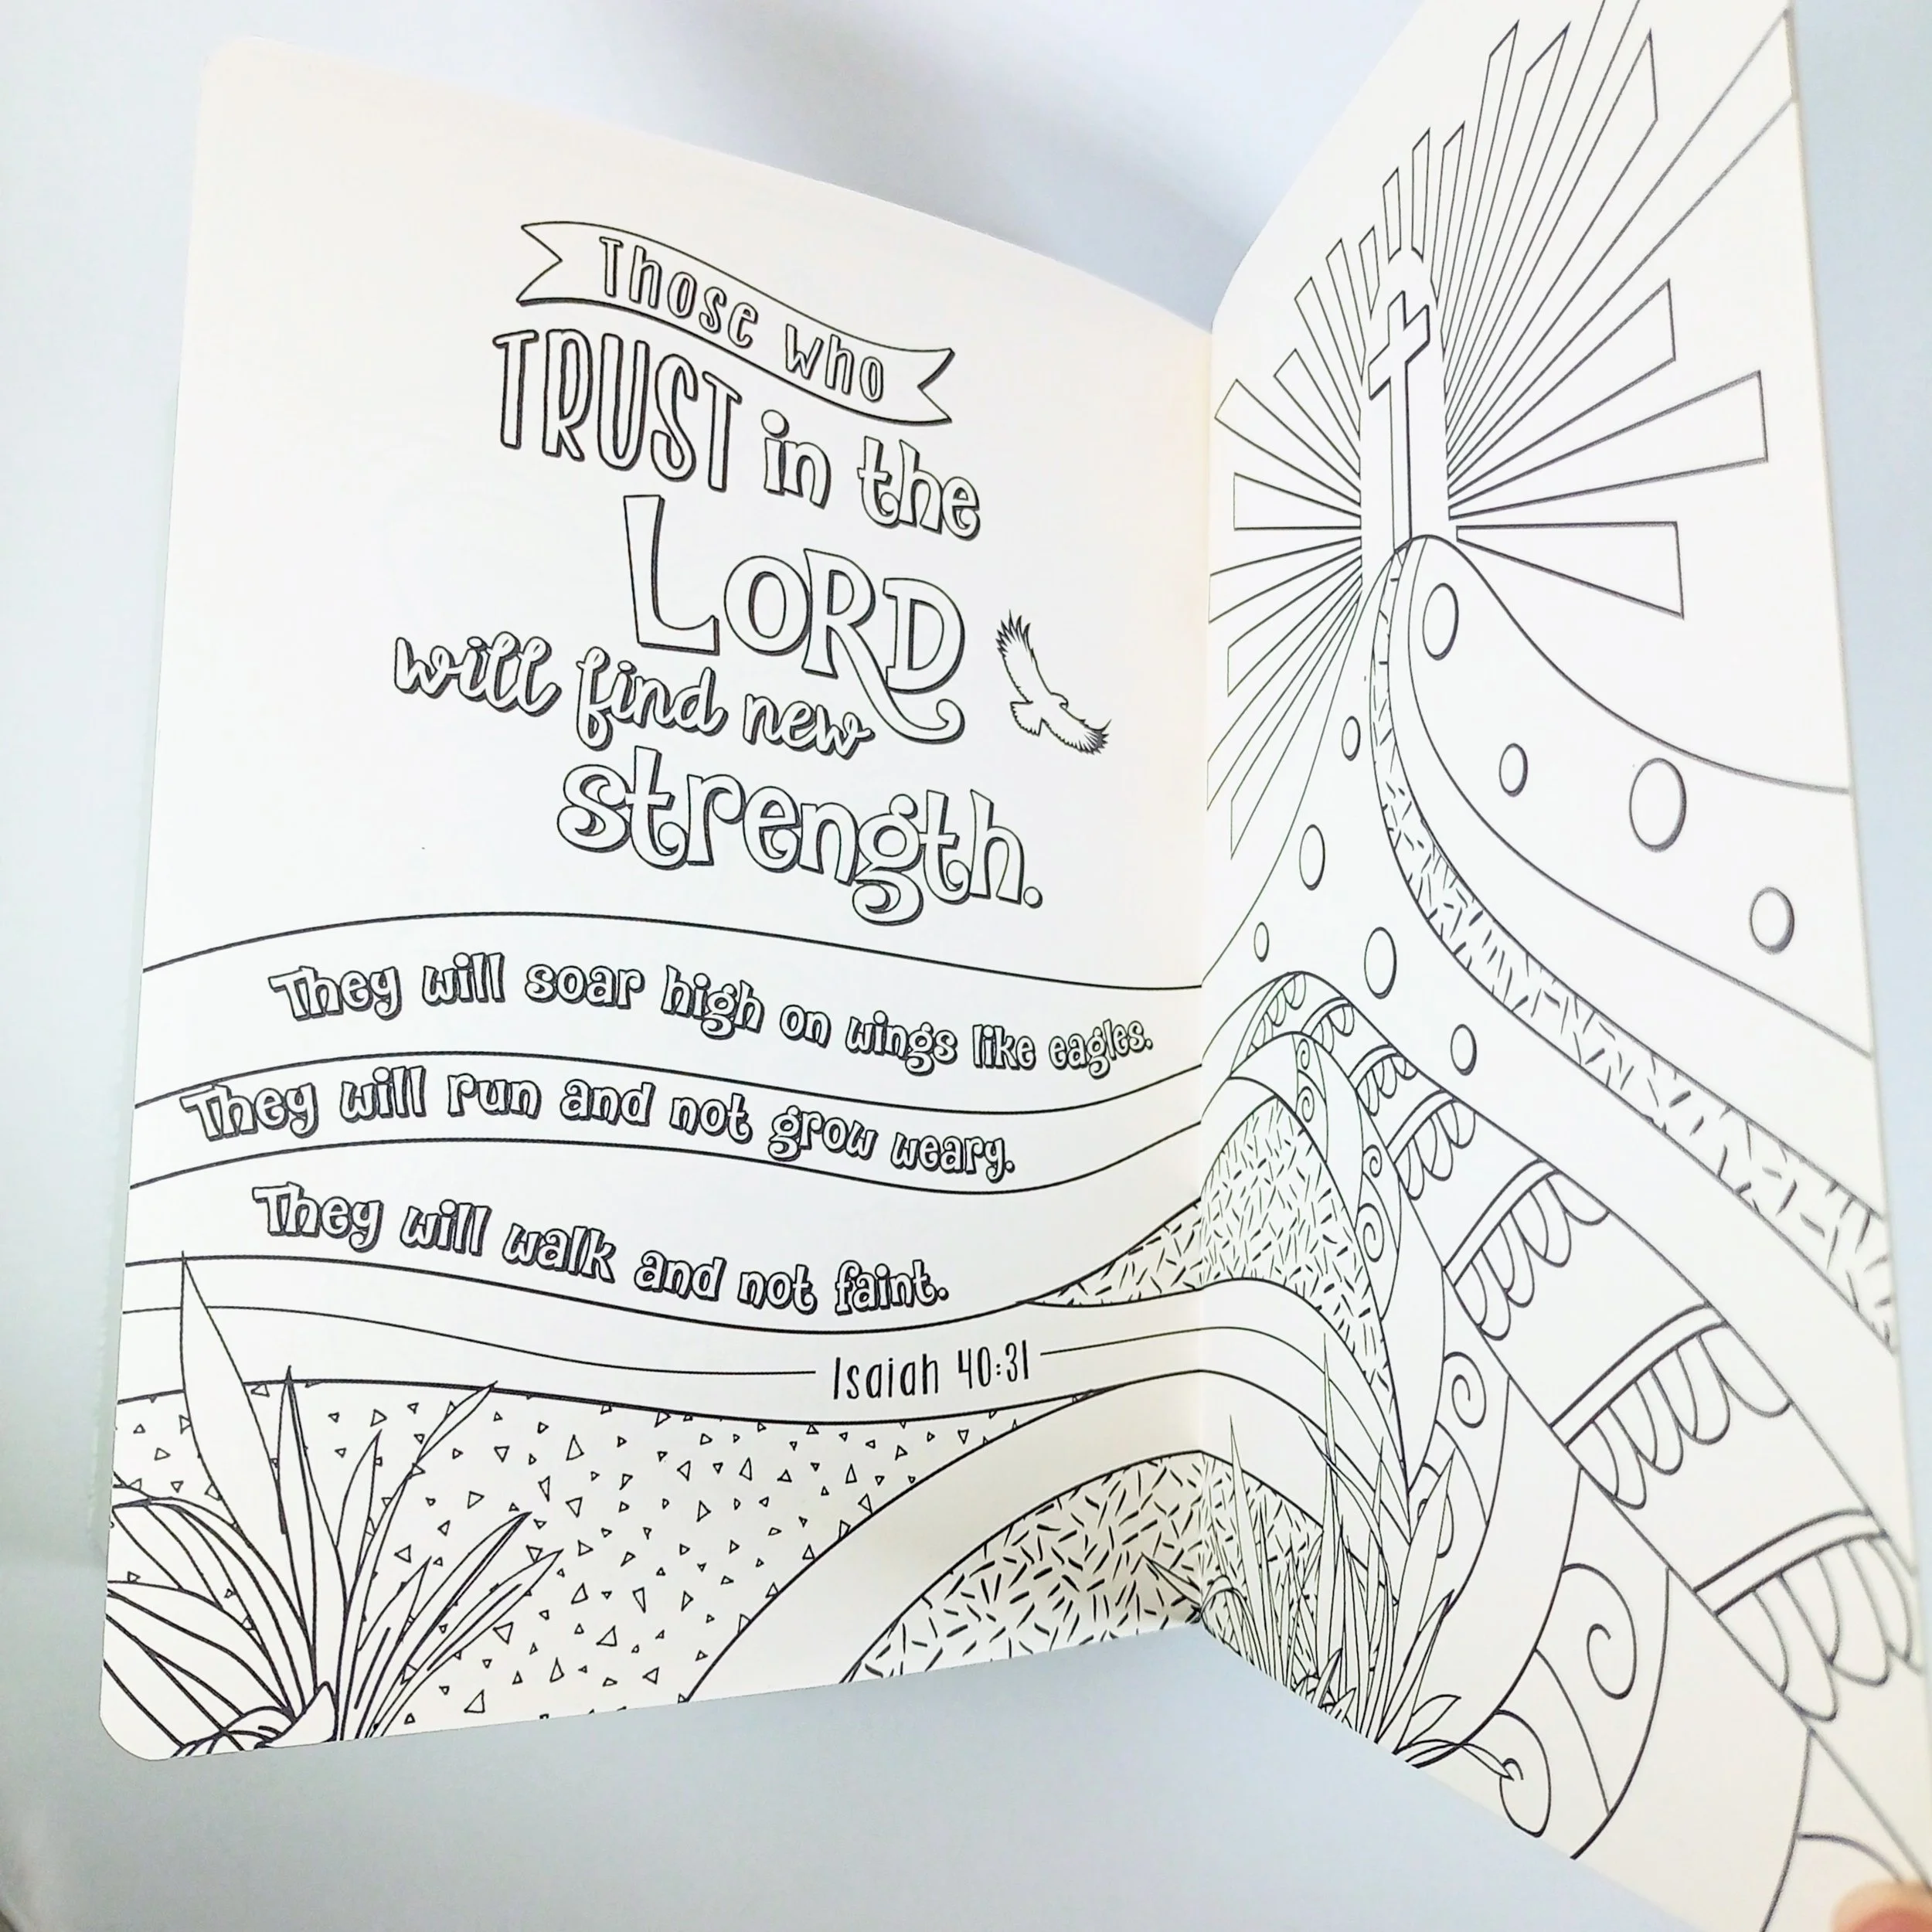 Those who
TRUST in the
LORD
will find new
strength.
They will soar high on wings like eagles.
They will run and not grow weary.
They will walk and not faint.
Isaiah 40:31